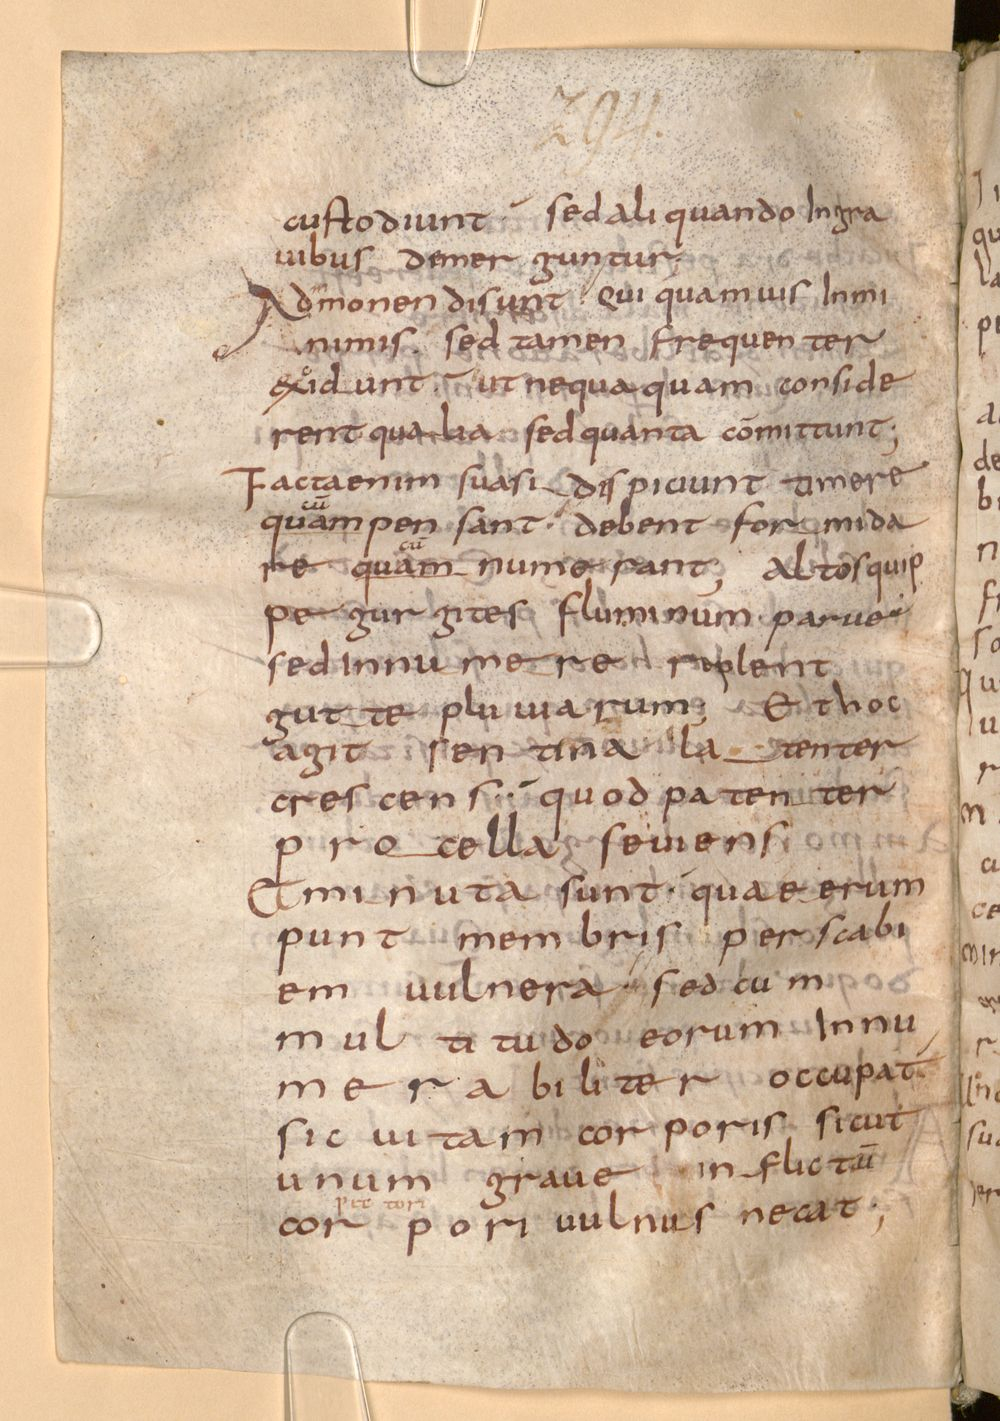 294.
custodiunt · sed aliquando Ingra
uibus demerguntur;
Admonendi sunt · qui quamuis Inmi
nimis. sed tamen frequenter
excidunt · ut nequaquam conside
rent qualia sed quanta cōmittunt;
Facta enim sua si dispiciunt timere
cū
quam pensant · debent formida
cū
re quam numerant; Altos quip
pe gurgites fluminum · parue
sed innumere replent
gutte pluuiarum; Et hoc
agit sentina latenter
crescens · quod patenter
procella seuiens
Et minuta sunt · quae erum
punt membris per scabi
em uulnera · sed cum
multitudo eorum Innu
merabiliter occupat
sic uitam corporis sicut
unum graue inflictū
pec tori
corpori uulnus necat;